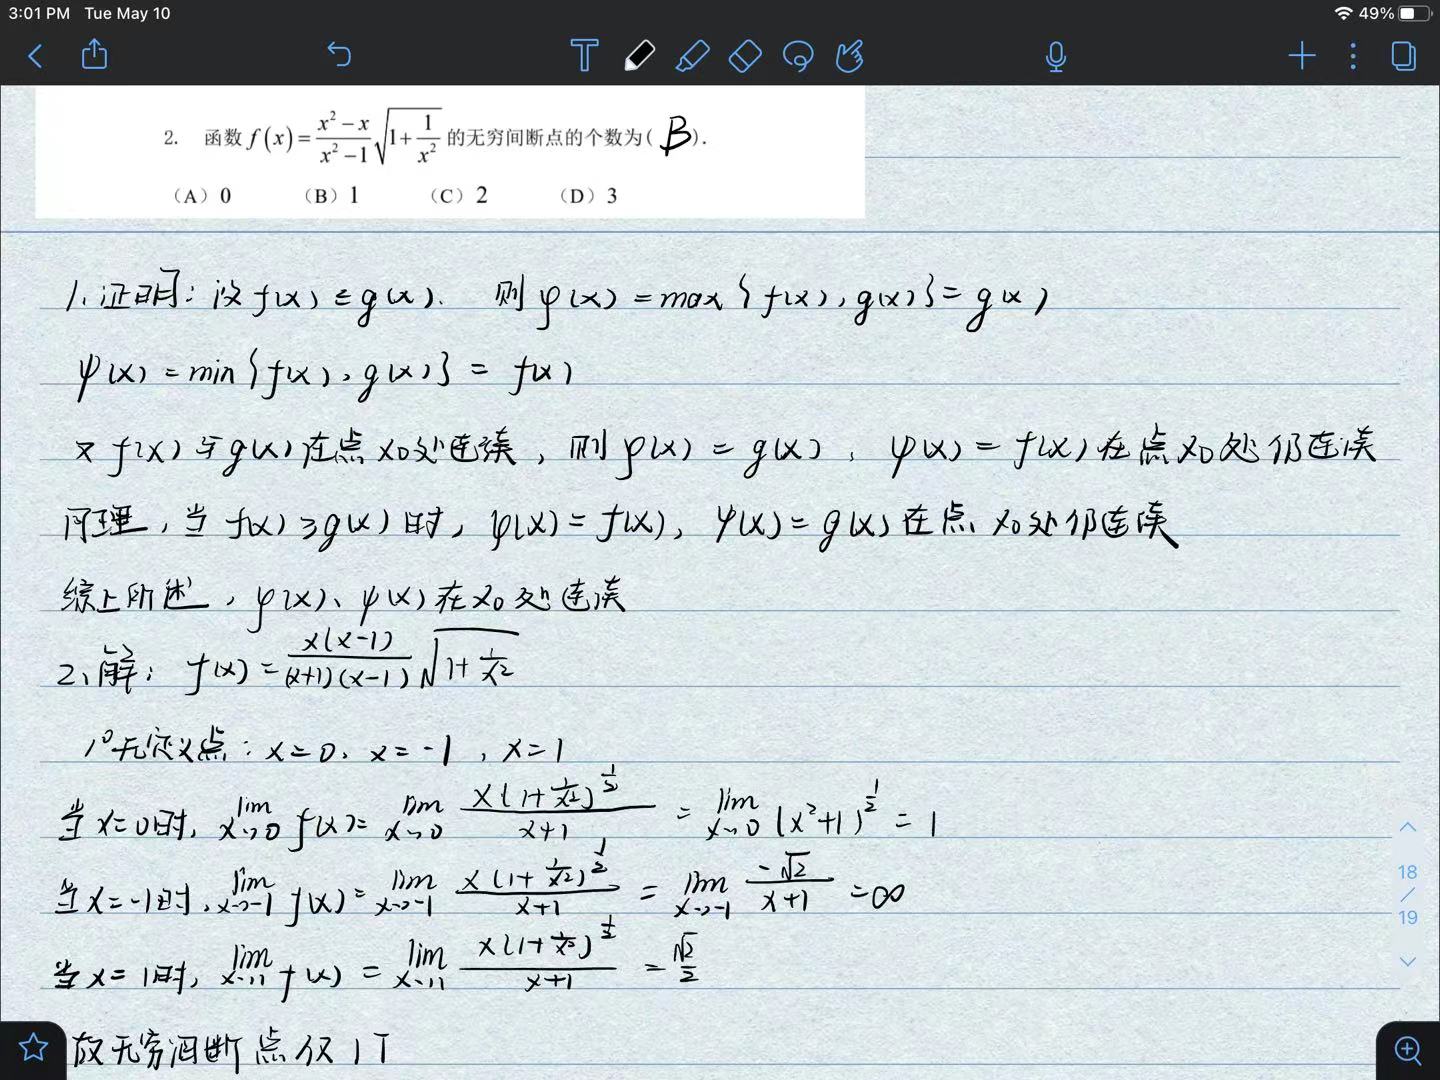 3:01 PM Tue May 10
49%
2. 函数 f(x)=\frac{x²-x}{x²-1}\sqrt{1+\frac{1}{x²}} 的无穷间断点的个数为( B ).
(A) 0 (B) 1 (C) 2 (D) 3
1、证明：设 f(x)≤g(x). 则 φ(x)=max{f(x), g(x)}=g(x)
ψ(x)=min{f(x), g(x)}=f(x)
又 f(x)与g(x)在点x₀处连续，则φ(x)=g(x)，ψ(x)=f(x)在点x₀处仍连续
同理，当 f(x)≥g(x)时，φ(x)=f(x)，ψ(x)=g(x)在点x₀处仍连续
综上所述，φ(x)、ψ(x)在x₀处连续
2、解：f(x)=\frac{x(x-1)}{(x+1)(x-1)}\sqrt{1+\frac{1}{x²}}
1°无定义点：x=0、x=-1，x=1
当x=0时，\lim_{x→0} f(x)=\lim_{x→0} \frac{x(1+\frac{1}{x²})^{\frac{1}{2}}}{x+1}=\lim_{x→0}(x²+1)^{\frac{1}{2}}=1
当x=-1时，\lim_{x→-1} f(x)=\lim_{x→-1} \frac{x(1+\frac{1}{x²})^{\frac{1}{2}}}{x+1}=\lim_{x→-1} \frac{-\sqrt{2}}{x+1}=∞
当x=1时，\lim_{x→1} f(x)=\lim_{x→1} \frac{x(1+\frac{1}{x²})^{\frac{1}{2}}}{x+1}=\frac{\sqrt{2}}{2}
故无穷间断点仅1个
18
/
19